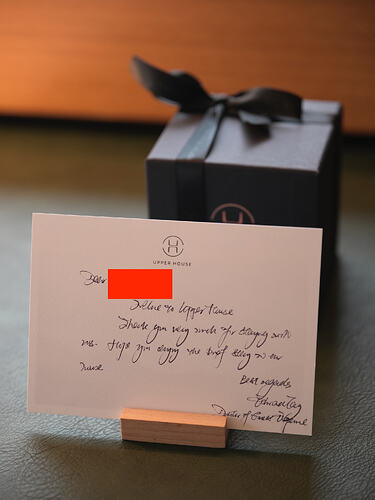 H
H
UPPER HOUSE
Dear
Welcome to Upper House
Thank you very much for staying with
us. Hope you enjoy the brief stay in our
house
Best regards
Director of Guest